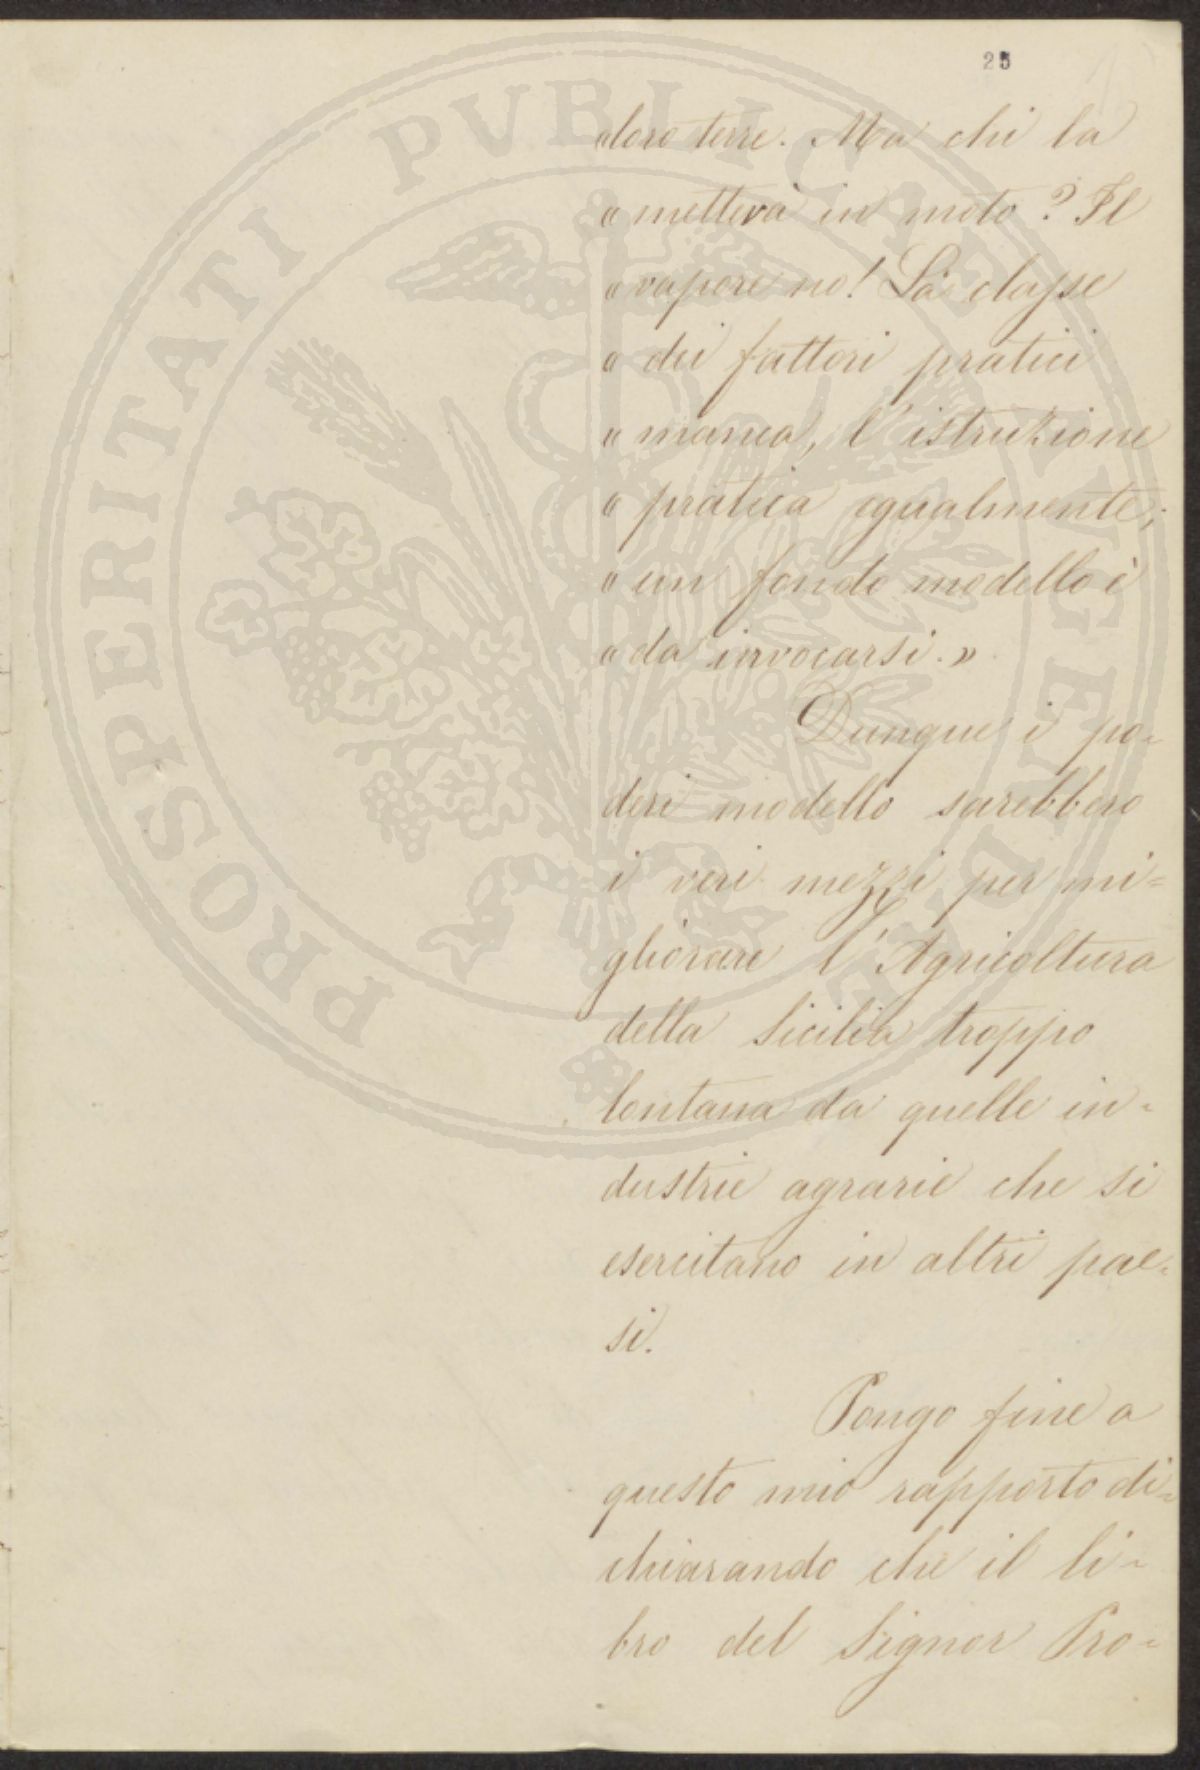 25
« loro terre. Ma chi la
« metteva in moto? Il
« vapore no! La classe
« dei fattori pratici
« manca, l'istruzione
« pratica egualmente;
« un fondo modello è
« da invocarsi.»
Dunque i po-
deri modello sarebbero
i veri mezzi per mi=
gliorare l'Agricoltura
della Sicilia troppo
lontana da quelle in-
dustrie agrarie che si
esercitano in altri pae-
si.
Pongo fine a
questo mio rapporto di=
chiarando che il li-
bro del Signor Pro=
PROSPERITATI PVBLICAE AVGENDAE